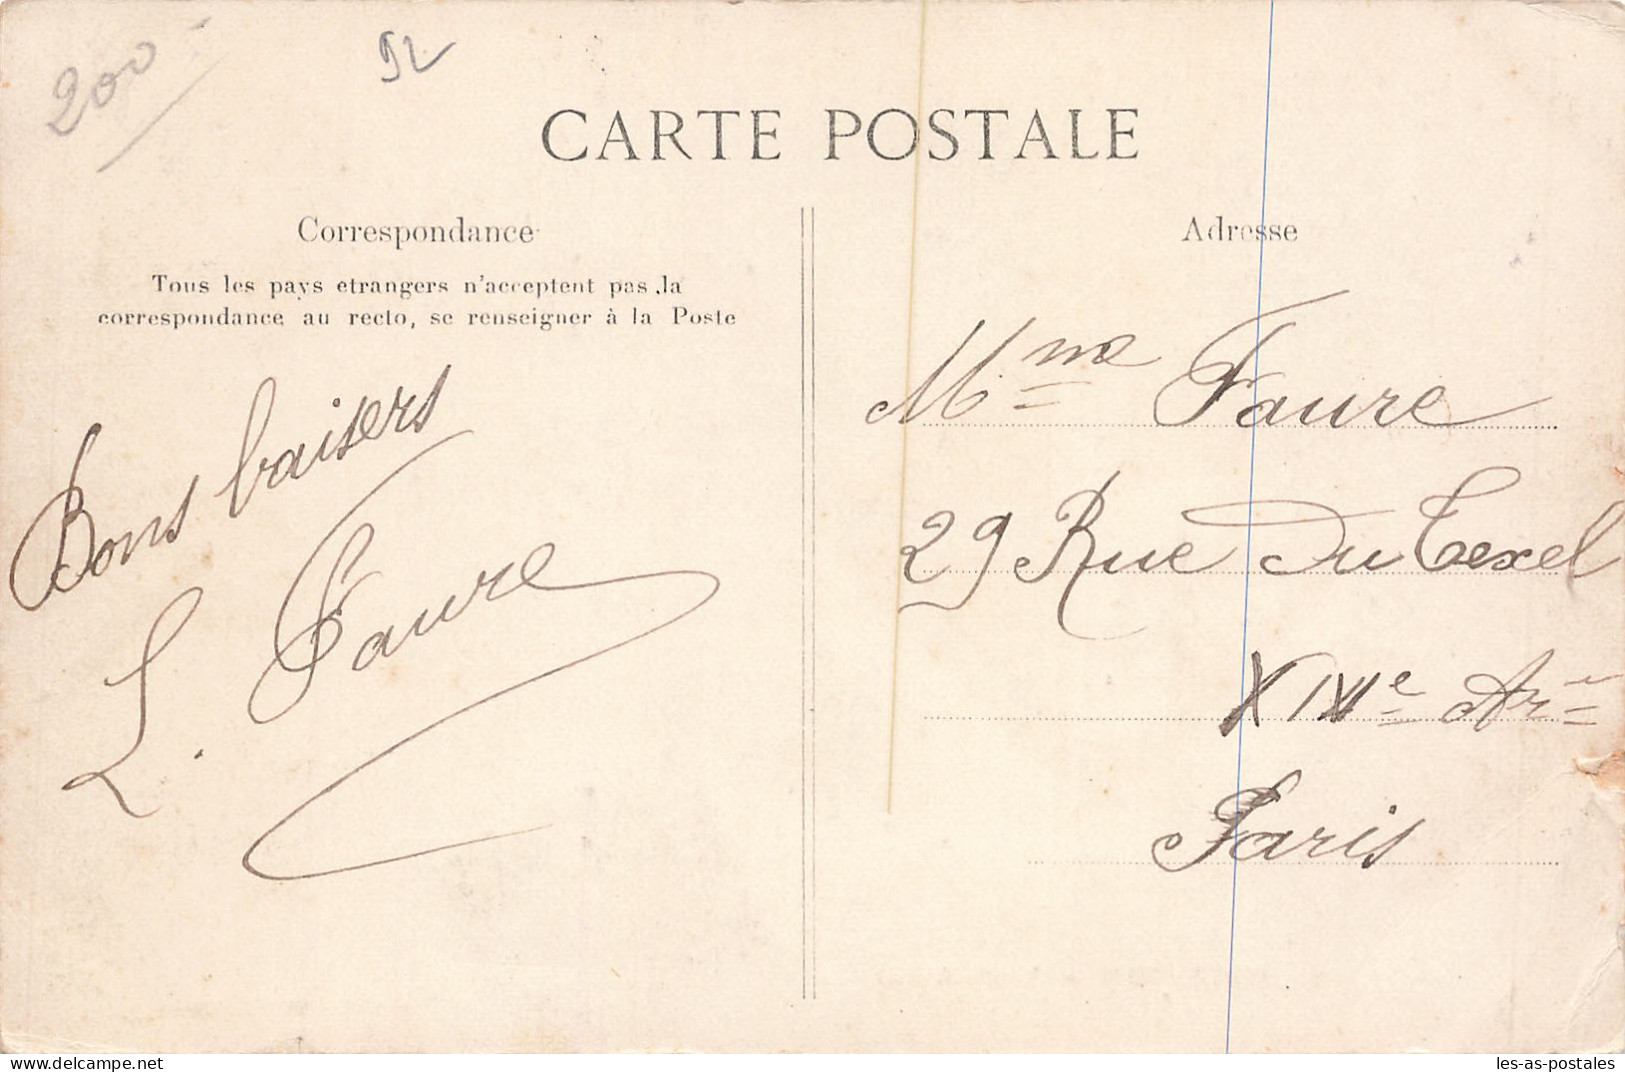 200
92
CARTE POSTALE
Correspondance
Tous les pays etrangers n'acceptent pas la
correspondance au recto, se renseigner à la Poste
Bons baisers
L. Faure
Adresse
Mme Faure
29 Rue Du Texel
XIVe Arr
Paris
www.delcampe.net
les-as-postales